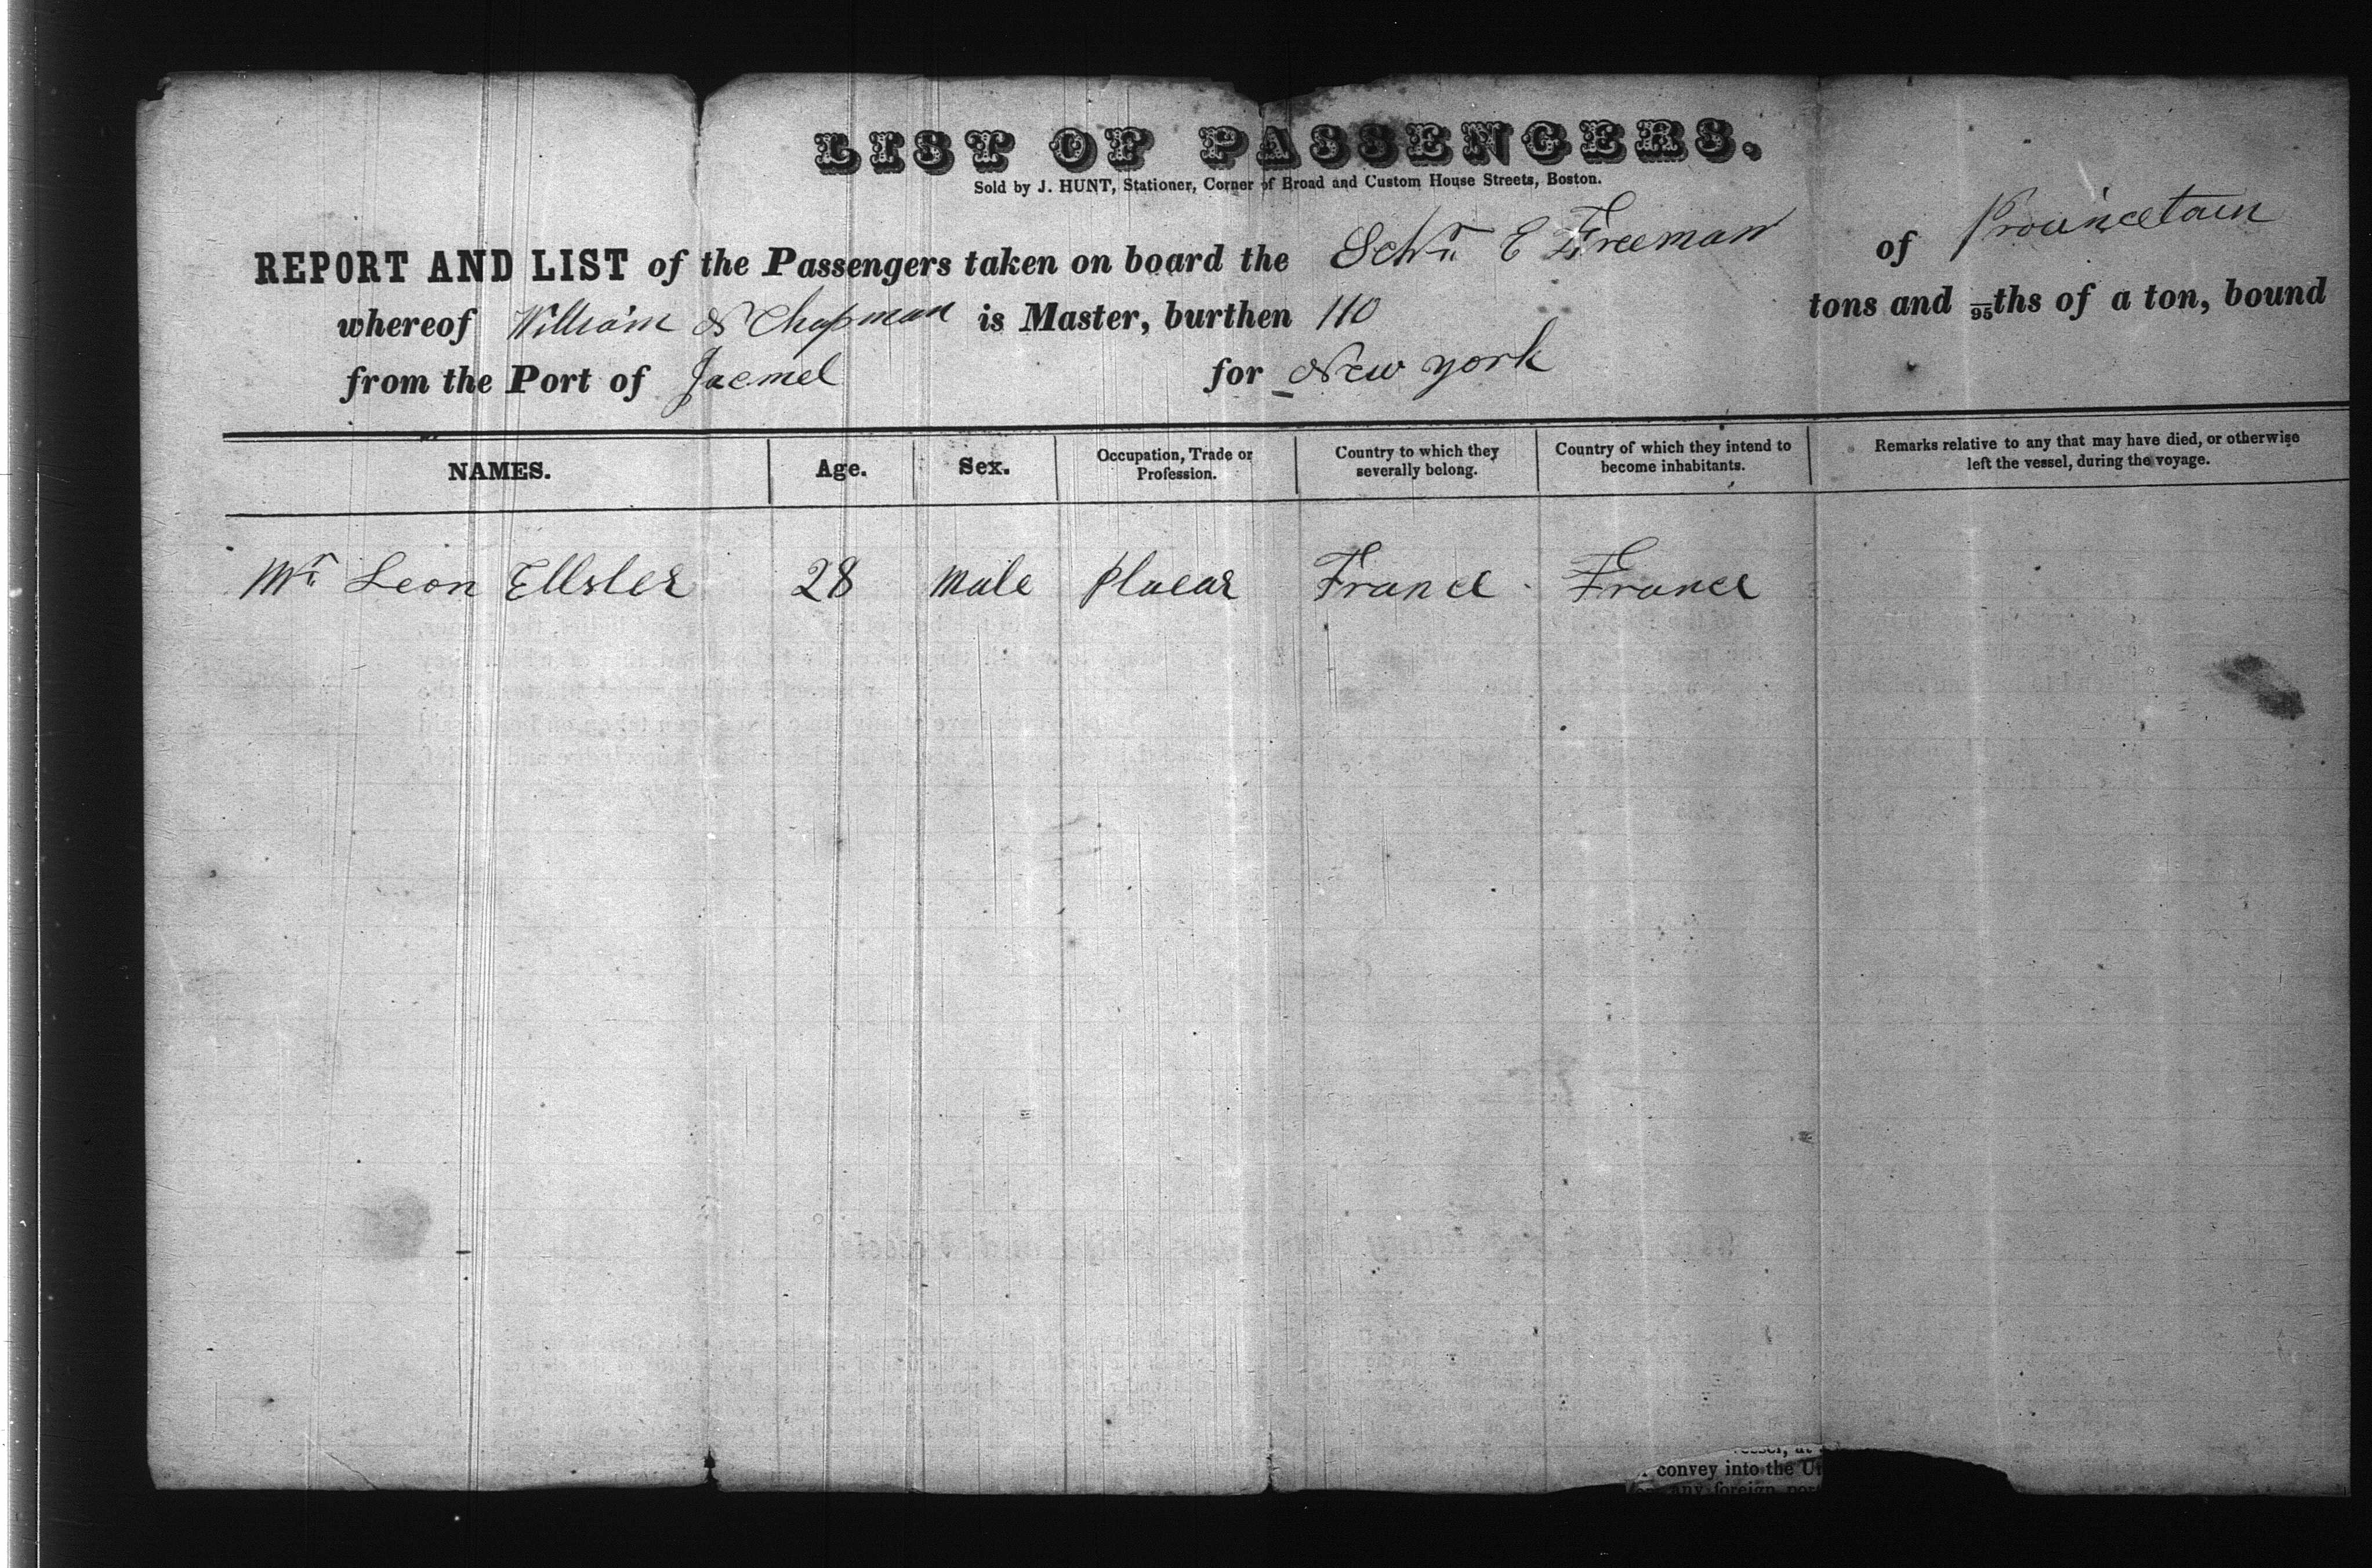 LIST OF PASSENGERS.
Sold by J. HUNT, Stationer, Corner of Broad and Custom House Streets, Boston.
REPORT AND LIST of the Passengers taken on board the Schr E Freeman of Provincetown
whereof William N Chapman is Master, burthen 110 tons and /95ths of a ton, bound
from the Port of Jacmel for New york
NAMES. Age. Sex. Occupation, Trade or Profession. Country to which they severally belong. Country of which they intend to become inhabitants. Remarks relative to any that may have died, or otherwise left the vessel, during the voyage.
Mr Leon Ellsler 28 Male France France
convey into the
any foreign por